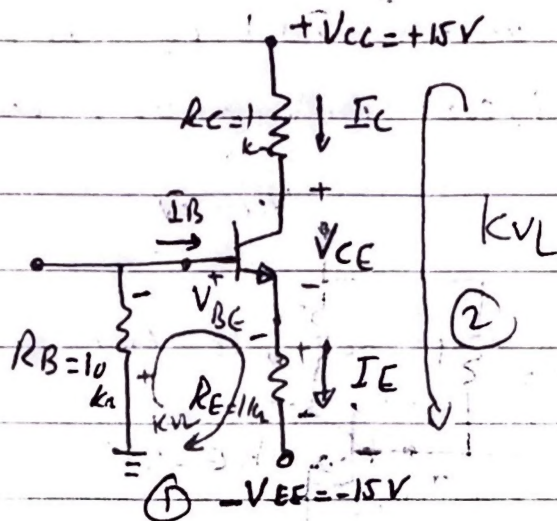 +VCC=+15V
RC=1
kΩ
IC
+
IB
VCE
KVL
+
-
VBE
-
-
2
RB=10
kΩ
+
KVL
RE=1kΩ
+
-
IE
1
-VEE=-15V